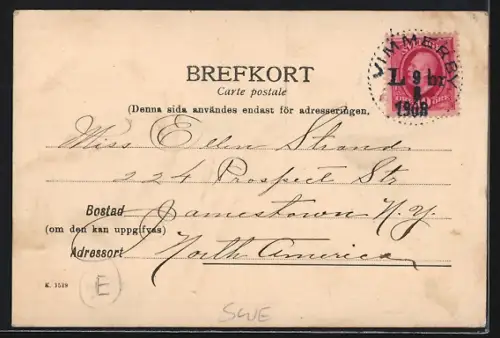 BREFKORT
Carte postale
(Denna sida användes endast för adresseringen.
VIMMERBY
L 9 br
8
1908
Miss Ellen Strand
224 Prospect Str
Bostad Jamestown N. Y.
(om den kan uppgifvas)
Adressort North America
K. 1519
E
SWE